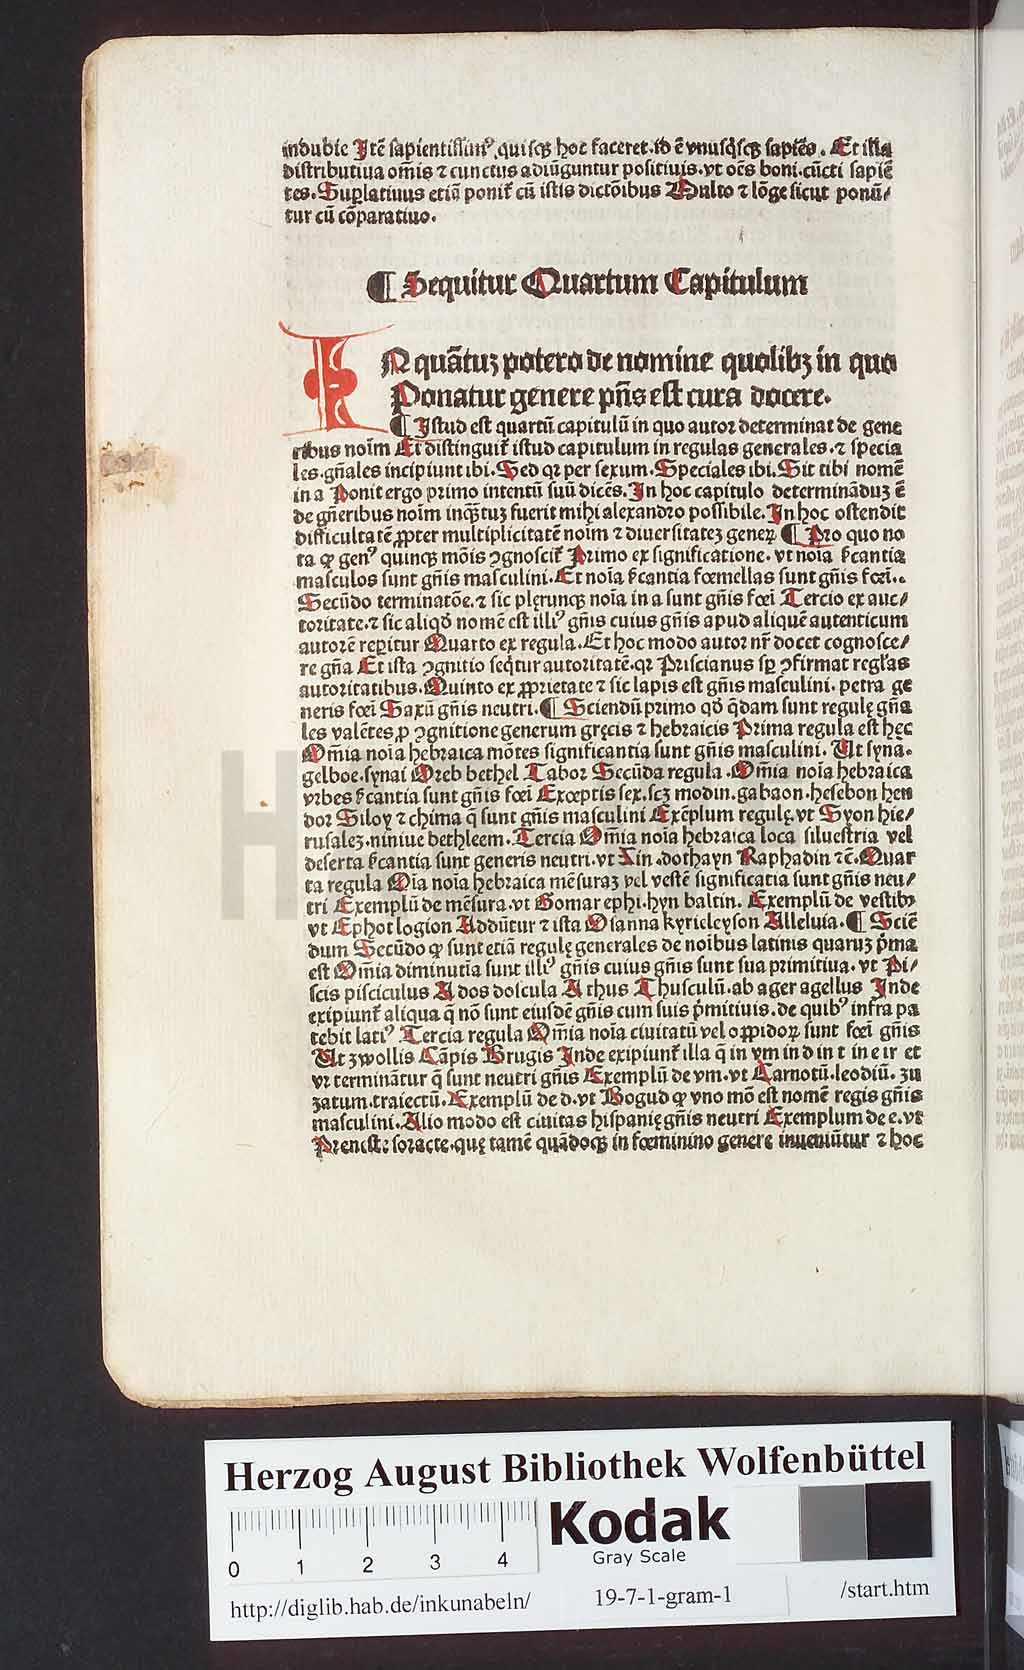 indubie Itē sapientissimꝰ quisqꝫ hoc faceret. id ē vnusq̄sqꝫ sapiēs. Et illa
distributiua om̄is ⁊ cunctus adiūguntur positiuis. vt oēs boni. cūcti sapiē
tes. Suꝑlatiuus etiā ponit᷑ cū istis dictōibus Multo ⁊ lōge sicut ponū/
tur cū cōparatiuo.
¶ Sequitur Quartum Capitulum
IN quātuꝫ potero de nomine quolibꝫ in quo
Ponatur genere pn̄s est cura docere.
¶ Istud est quartū capitulū in quo autor determinat de gene
ribus noīm Et distinguit᷑ istud capitulum in regulas generales. ⁊ specia
les. gn̄ales incipiunt ibi. Sed qꝛ per sexum. Speciales ibi. Sit tibi nomē
in a Ponit ergo primo intentū suū dicēs. In hoc capitulo determināduꝫ ē
de gn̄eribus noīm inqꝫtuꝫ fuerit mihi alexandro possibile. In hoc ostendit
difficultatē ꝓpter multiplicitatē noīm ⁊ diuersitateꝫ geneꝝ ¶ Pro quo no
ta ꝙ genꝰ quinqꝫ mōis ꝯgnoscit᷑ Primo ex significatione. vt noīa s̄cantia
masculos sunt gn̄is masculini. Et noīa s̄cantia fœmellas sunt gn̄is fœī..
Secūdo terminatōe. ⁊ sic plęrunqꝫ noīa in a sunt gn̄is fœī Tercio ex auc/
toritate. ⁊ sic aliqd̄ nomē est illiꝰ gn̄is cuius gn̄is apud aliquē autenticum
autorē reꝑitur Quarto ex regula. Et hoc modo autor nr̄ docet cognosce/
re gn̄a Et ista ꝯgnitio seq̄tur autoritatē. qꝛ Priscianus sꝑ ꝯfirmat regl̄as
autoritatibus. Quinto ex ꝓprietate ⁊ sic lapis est gn̄is masculini. petra ge
neris fœī Saxū gn̄is neutri. ¶ Sciendū primo qd̄ q̄dam sunt regulę gn̄a
les valētes ꝓ ꝯgnitione generum gręcis ⁊ hebraicis Prima regula est hęc
Om̄ia noīa hebraica mōtes significantia sunt gn̄is masculini. Ut syna.
gelboe. synai Oreb bethel Tabor Secūda regula. Om̄ia noīa hebraica
vrbes s̄cantia sunt gn̄is fœī Exceptis sex. scꝫ modin. gabaon. hesebon hen
dor Siloy ⁊ chima q̄ sunt gn̄is masculini Exēplum regulę. vt Syon hie/
rusaleꝫ. niniue bethleem. Tercia Om̄ia noīa hebraica loca siluestria vel
deserta s̄cantia sunt generis neutri. vt Xin. dothayn Raphadin ⁊c̄. Quar
ta regula Oīa noīa hebraica mēsuraꝫ vel vestē significatia sunt gn̄is neu/
tri Exemplū de mēsura. vt Gomar ephi. hyn baltin. Exemplū de vestibꝫ
vt Ephot logion Addūtur ⁊ ista Osanna kyrieleyson Alleluia. ¶ Sciē
dum Secūdo ꝙ sunt etiā regulę generales de noībus latinis quaruꝫ p̄ma
est Om̄ia diminutia sunt illiꝰ gn̄is cuius gn̄is sunt sua primitiua. vt Pi/
scis pisciculus A dos doscula A thus Thusculū. ab ager agellus Inde
exipiunt᷑ aliqua q̄ nō sunt eiusdē gn̄is cum suis p̄mitiuis. de quibꝰ infra pa
tebit latiꝰ Tercia regula Om̄ia noīa ciuitatū vel oꝓpidoꝝ sunt fœī gn̄is
Ut zwollis Cāpis Brugis Inde exipiunt᷑ illa q̄ in vm in d in t in e ir et
vr terminātur q̄ sunt neutri gn̄is Exemplū de vm. vt Carnotū. leodiū. zu
zatum. traiectū. Exemplū de d. vt Bogud ꝙ vno mō est nomē regis gn̄is
masculini. Alio modo est ciuitas hispanię gn̄is neutri Exemplum de e. vt
Preneste soracte. quę tamē quādoqꝫ in fœminino genere inueniūtur ⁊ hoc
Herzog August Bibliothek Wolfenbüttel
Kodak
Gray Scale
0 1 2 3 4
http://diglib.hab.de/inkunabeln/ 19-7-1-gram-1 /start.htm